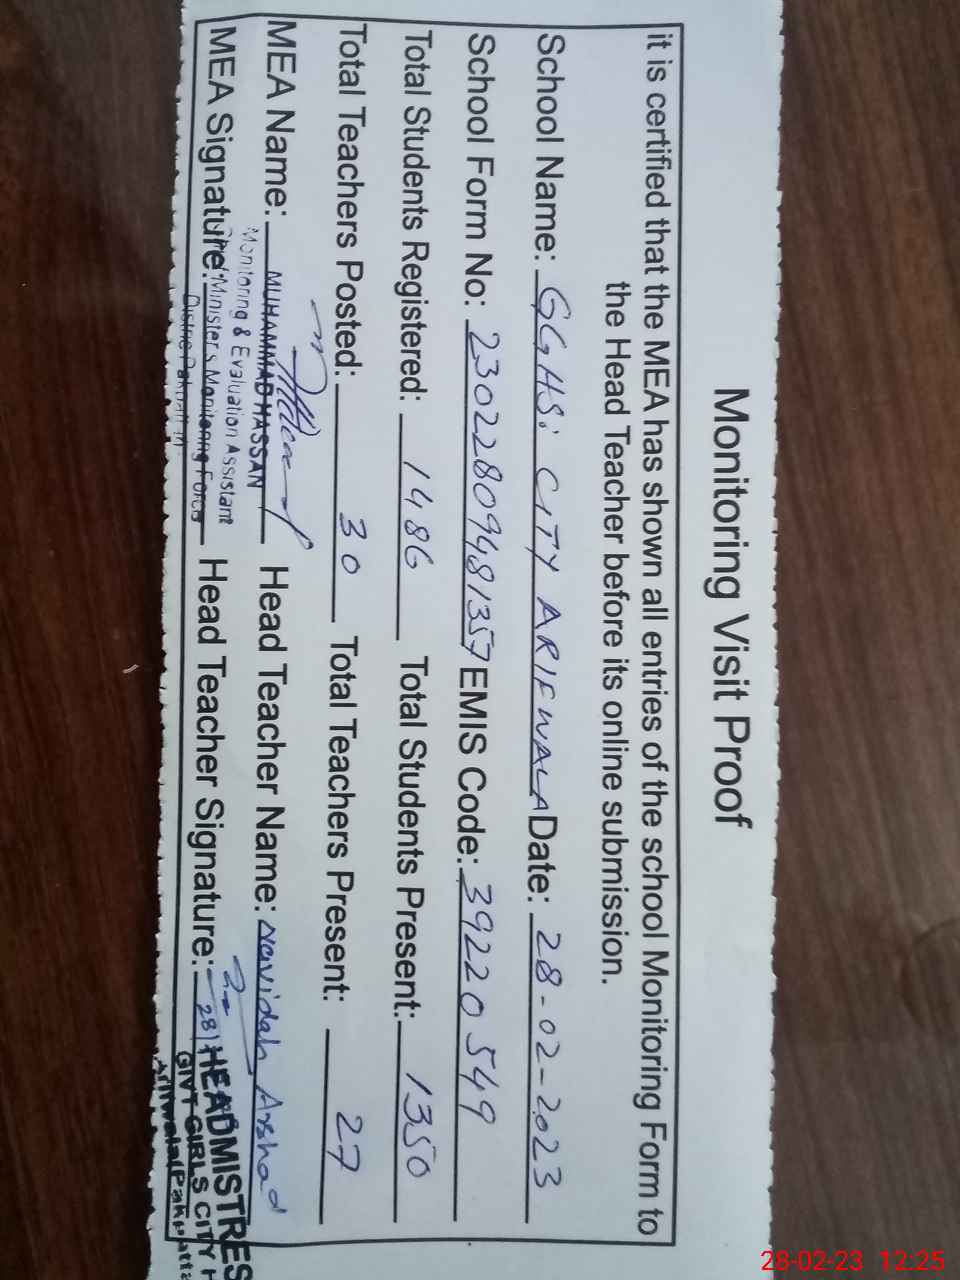 Monitoring Visit Proof
it is certified that the MEA has shown all entries of the school Monitoring Form to
the Head Teacher before its online submission.
School Name: GGHS: CITY ARIFWALA Date: 28-02-2023
School Form No: 23022809481357 EMIS Code: 39220549
Total Students Registered: 1486 Total Students Present: 1350
Total Teachers Posted: 30 Total Teachers Present: 27
MEA Name: MUHAMMAD HASSAN Head Teacher Name: Navidah Arshad
Monitoring & Evaluation Assistant
MEA Signature: Minister's Monitoring Force Head Teacher Signature: 28
District Pakpattan
HEADMISTRES
GOVT GIRLS CITY H
Arifwala (Pakpatta
28-02-23 12:25